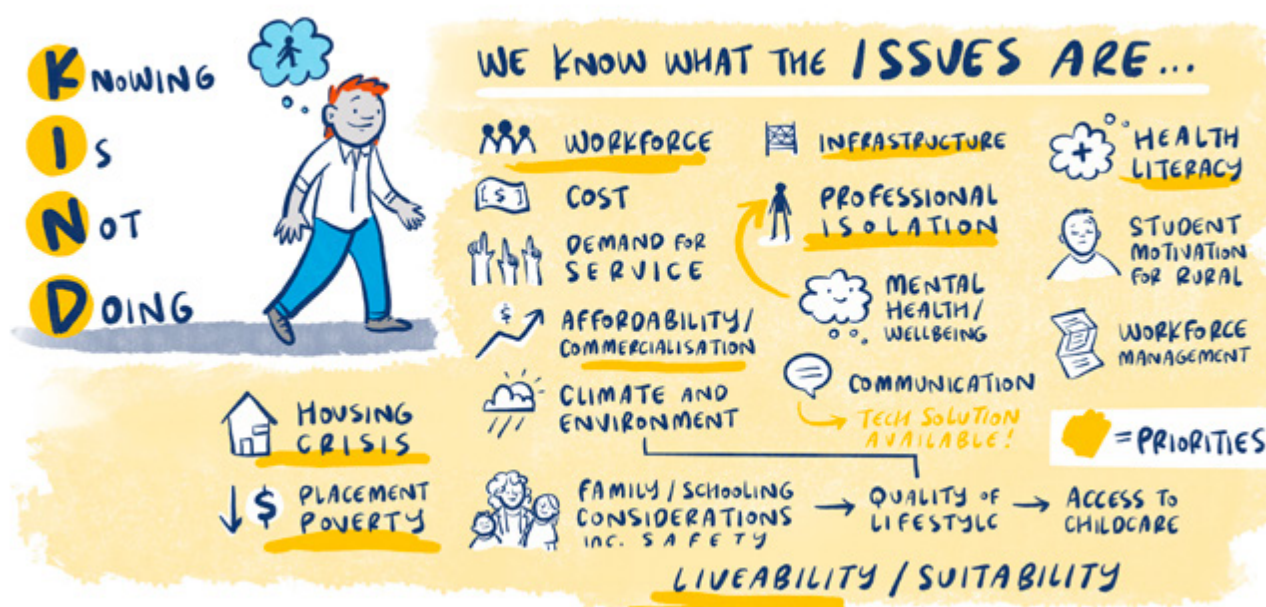 KNOWING
IS
NOT
DOING
WE KNOW WHAT THE ISSUES ARE...
WORKFORCE
$
COST
DEMAND FOR
SERVICE
$
AFFORDABILITY/
COMMERCIALISATION
CLIMATE AND
ENVIRONMENT
INFRASTRUCTURE
PROFESSIONAL
ISOLATION
MENTAL
HEALTH/
WELLBEING
COMMUNICATION
TECH SOLUTION
AVAILABLE!
HEALTH
LITERACY
STUDENT
MOTIVATION
FOR RURAL
WORKFORCE
MANAGEMENT
= PRIORITIES
HOUSING
CRISIS
$ PLACEMENT
POVERTY
FAMILY/SCHOOLING
CONSIDERATIONS
INC. SAFETY
QUALITY OF
LIFESTYLE
ACCESS TO
CHILDCARE
LIVEABILITY/SUITABILITY